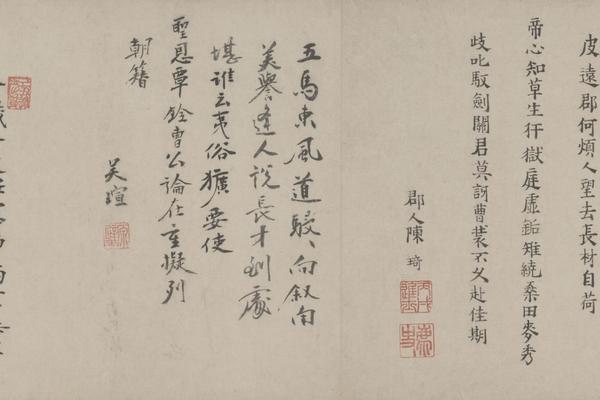 皮遠郡何煩人望去長材自荷
帝心知草生犴獄庭虛雉繞桑田麥秀
歧叱馭劍關君莫訝曹裝不久赴佳期
郡人陳琦
五馬東風道駸、向叙南
美譽逢人說長才到處
堪誰云夷俗獷要使
聖恩覃銓曹公論在重擬列
朝籍
吳瑄